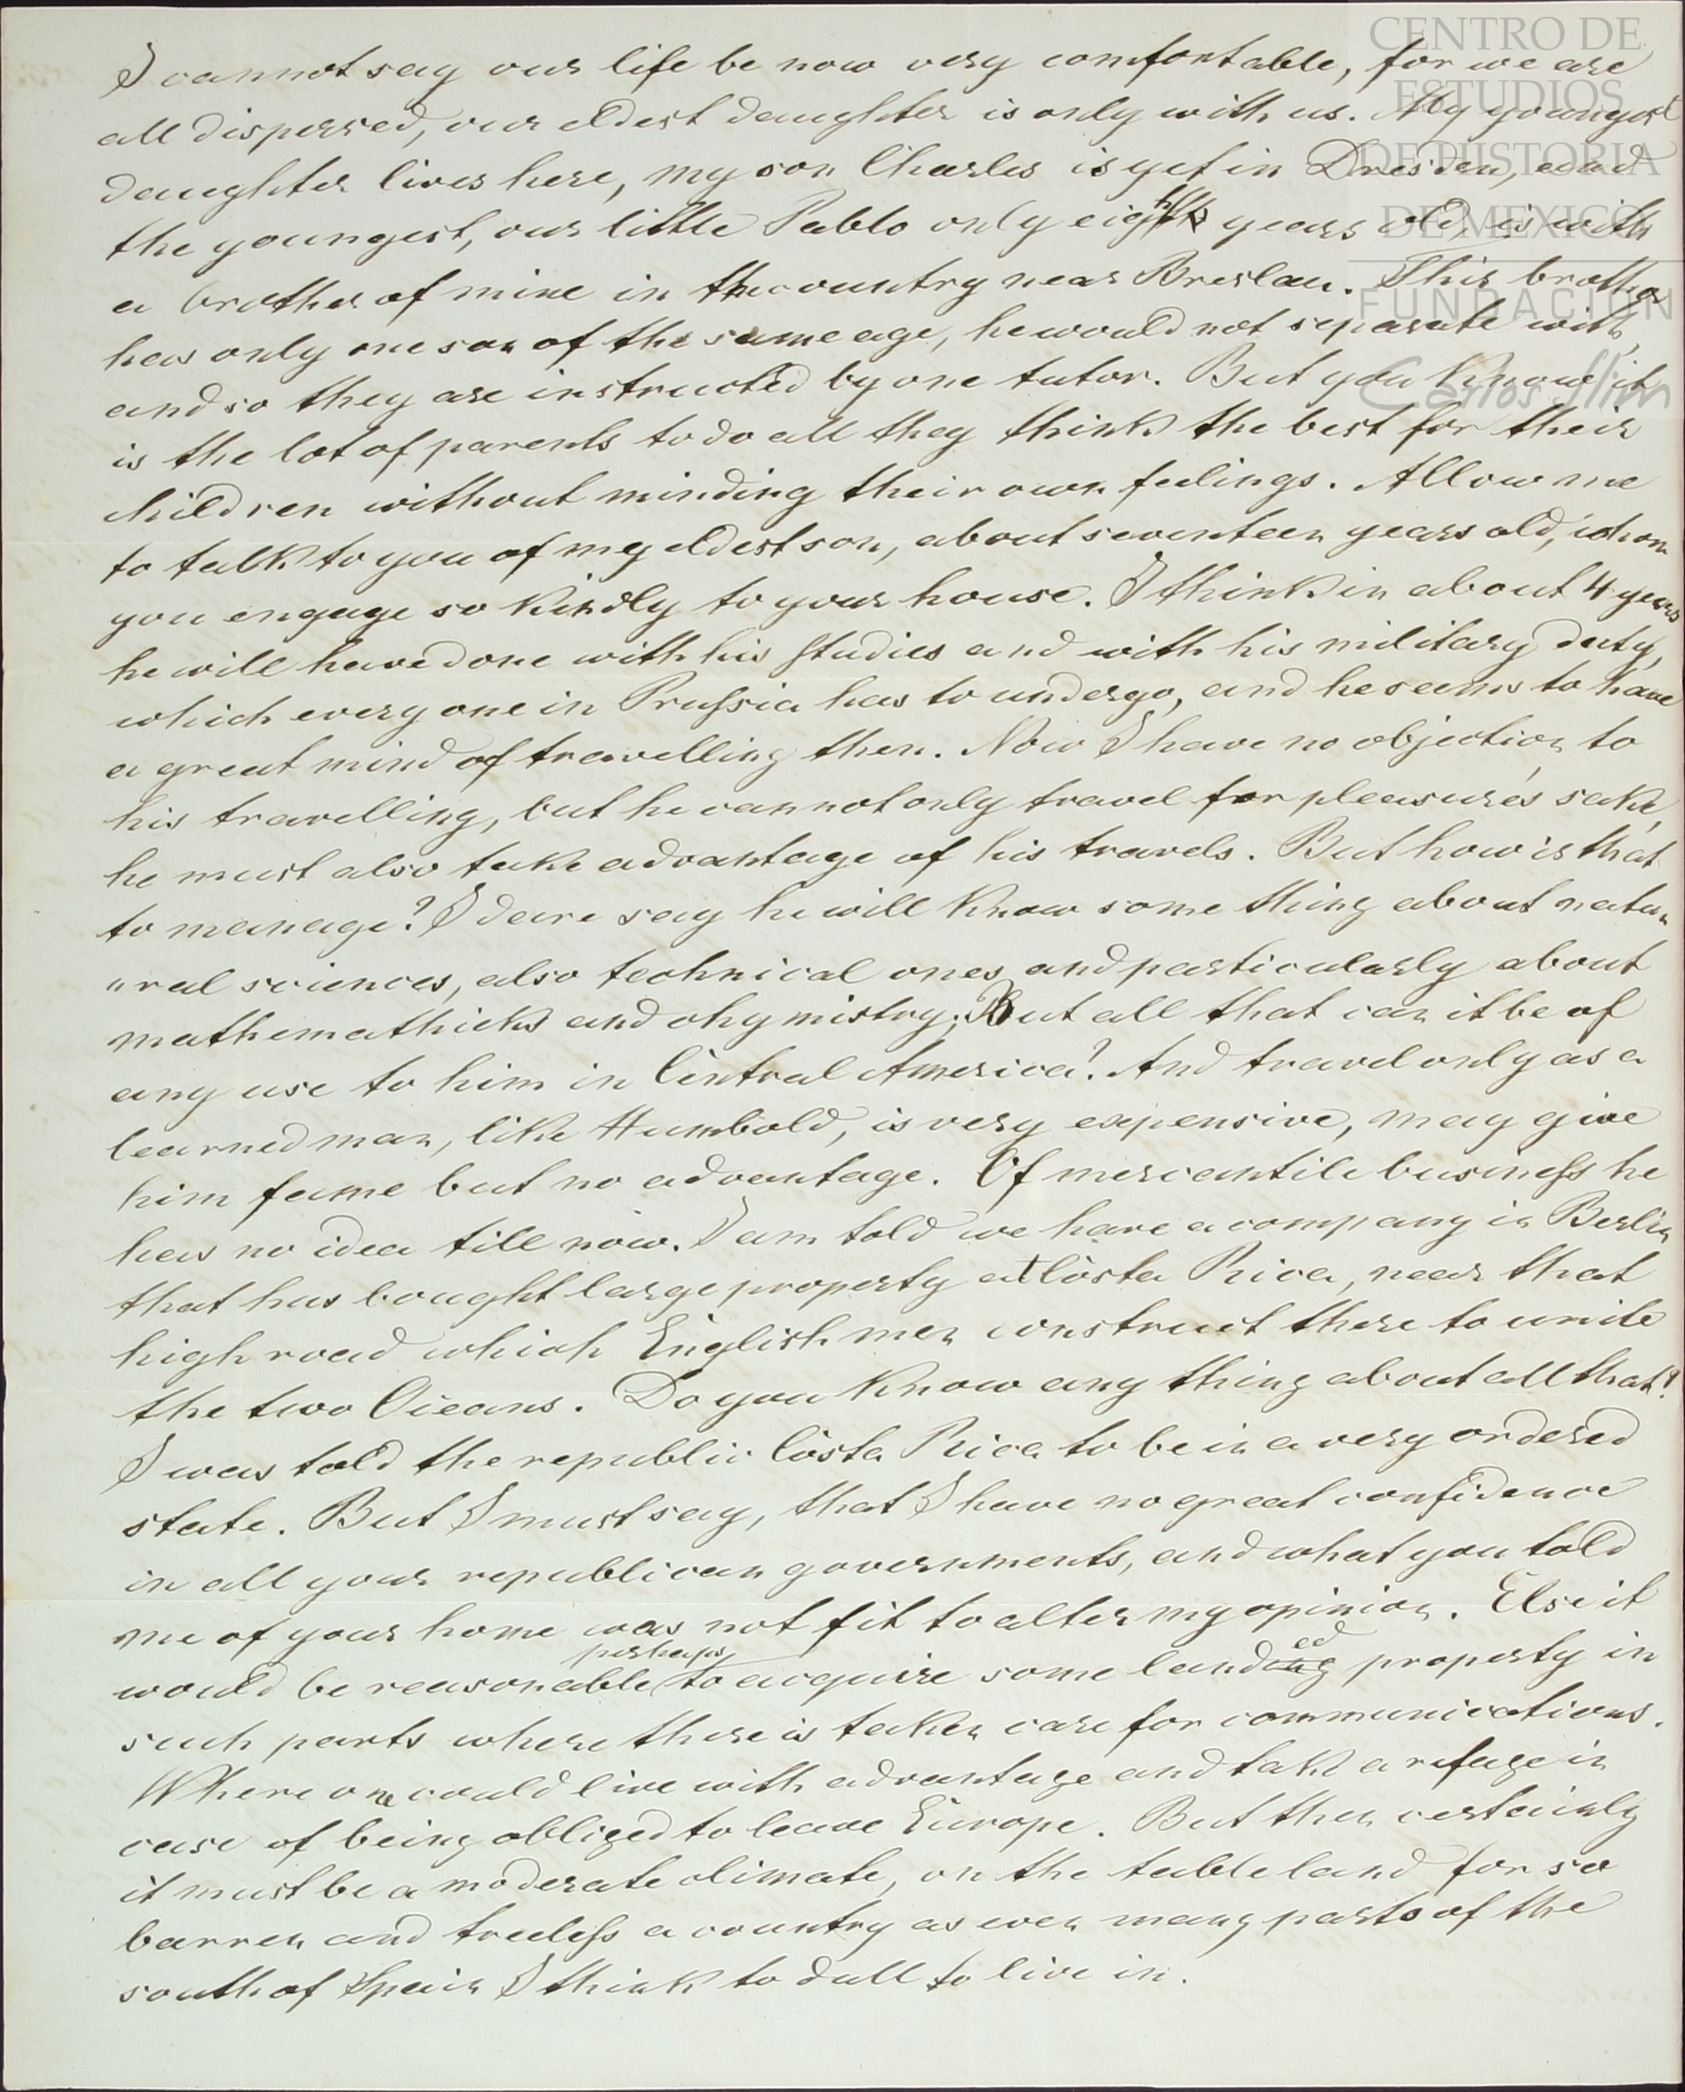 CENTRO DE
ESTUDIOS
DE HISTORIA
DE MEXICO
FUNDACIÓN
Carlos Slim
I cannot say our life be now very comfortable, for we are
all dispersed, our eldest daughter is only with us. My youngest
daughter lives here, my son Charles is yet in Dresden, and
the youngest, our little Pablo only eight years old, is with
a brother of mine in the country near Breslau. This brother
has only one son of the same age, he would not separate with,
and so they are instructed by one tutor. But you know it
is the lot of parents to do all they think the best for their
children without minding their own feelings. Allow me
to talk to you of my eldest son, about seventeen years old, whom
you engage so kindly to your house. I think in about 4 years
he will have done with his studies and with his military duty,
which every one in Prussia has to undergo, and he seems to have
a great mind of travelling then. Now I have no objection to
his travelling, but he can not only travel for pleasure's sake,
he must also take advantage of his travels. But how is that
to manage? I dare say he will know some thing about natu„
„ral sciences, also technical ones and particularly about
mathemathicks and chymistry. But all that can it be of
any use to him in Central America? And travel only as a
learned man, like Humbold, is very expensive, may give
him fame but no advantage. Of mercantile business he
has no idea till now. I am told we have a company in Berlin
that has bought large property at Costa Rica, near that
high road which English men construct there to unite
the two Oceans. Do you know any thing about all that?
I was told the republic Costa Rica to be in a very ordered
state. But I must say, that I have no great confidence
in all your republican governments, and what you told
me of your home was not fit to alter my opinion. Else it
would be reasonable perhaps to acquire some landed property in
such parts where there is taken care for communications.
Where one could live with advantage and take a refuge in
case of being obliged to leave Europe. But then certainly
it must be a moderate climate, on the table land for so
barren and treeless a country as even many parts of the
south of Spain I think to dull to live in.